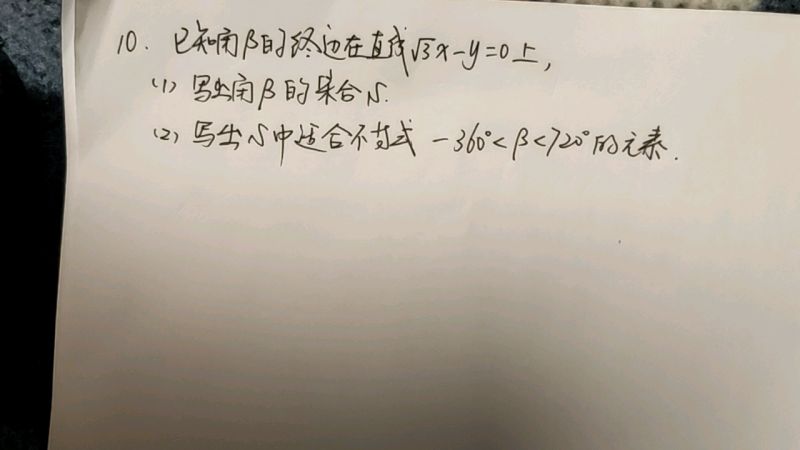 10. 已知角β的终边在直线√3x-y=0上,
(1) 写出角β的集合S.
(2) 写出S中适合不等式 -360°<β<720°的元素.